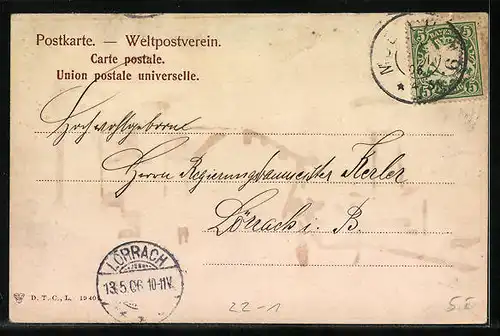 Postkarte. — Weltpostverein.
Carte postale.
Union postale universelle.
BAYERN
5 5
Hochwohlgeboren
Herrn Regierungsbaumeister Kerler
Lörrach i. B
LÖRRACH
13.5.06 10-11V.
D. T. C., L. 1940
22-1